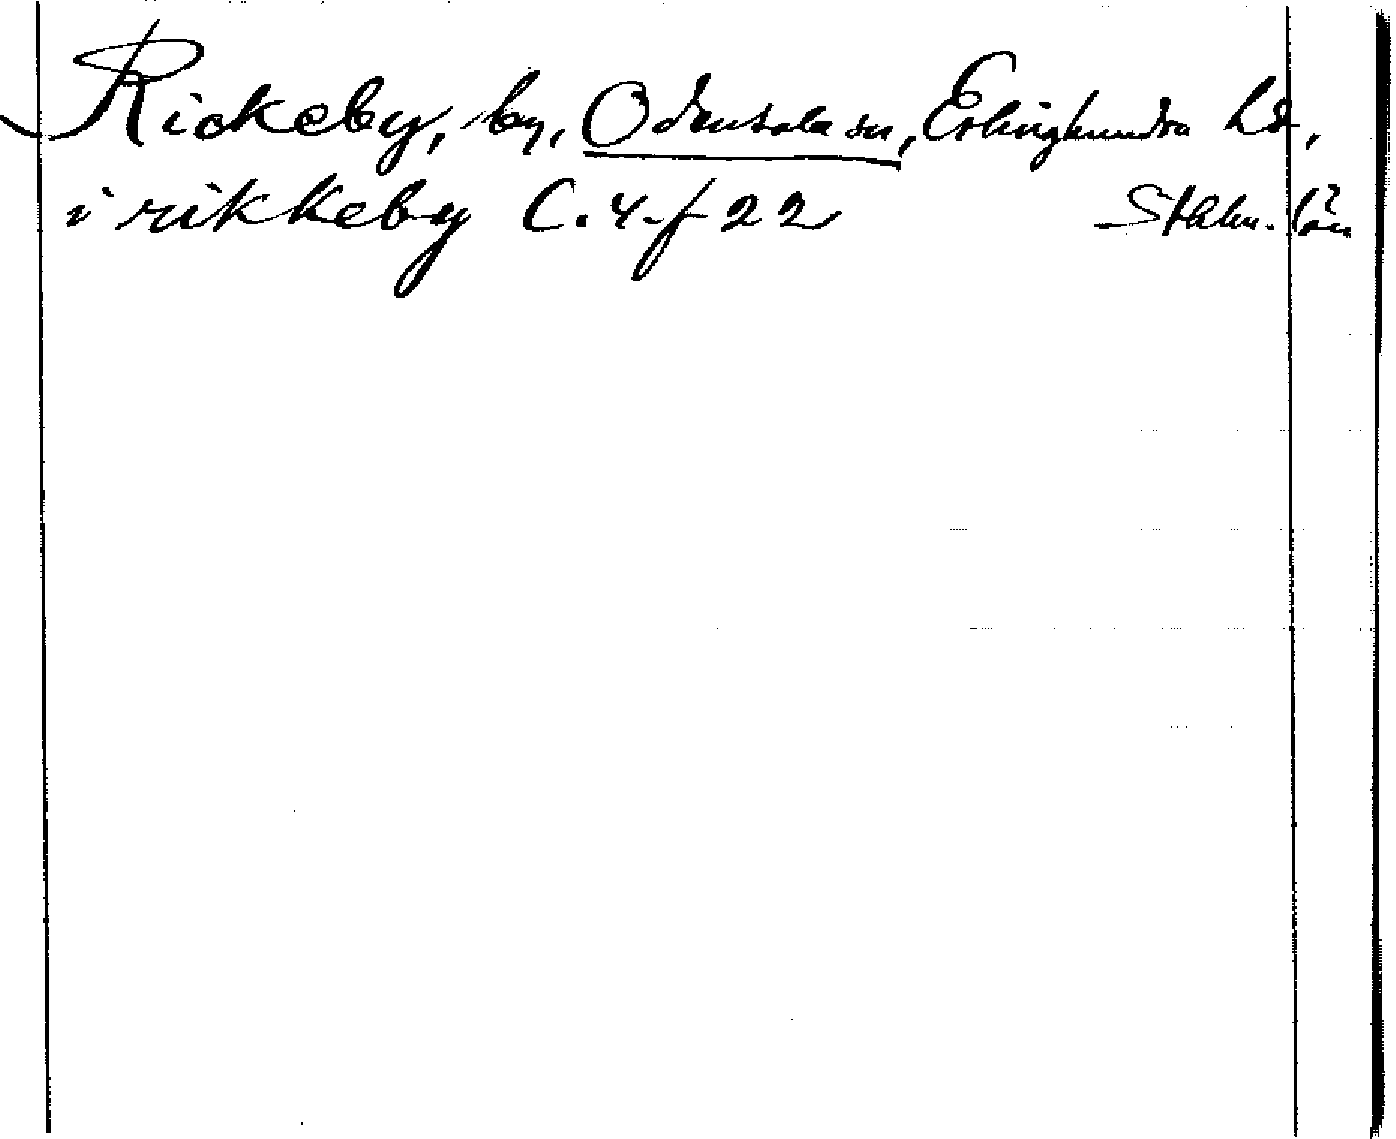 Rickeby, by, Odensala sn, Erlinghundra hd,
i rikkeby C. 4. f 22 Sthlm. län